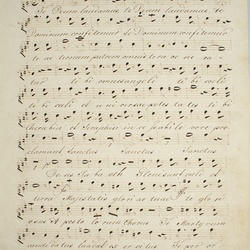 Te Deum laudamus te Deum laudamus te
Dominum confitemur te Dominum confitemur
te aeternum patrem omnis terra ve ne
tibi omnes angeli ti bi caeli
ti bi caeli et universae potestates ti bi
cherubin et Seraphin in ces sabili voce pro
clamant Sanctus Sanctus Sanctus
Deus Sa ba oth Pleni sunt caeli et
terra Majestatis gloriae tuae te glo ri
osus A posto lorum chorus Te Martyrum
candidatus laudat ex er ci tus Te per or